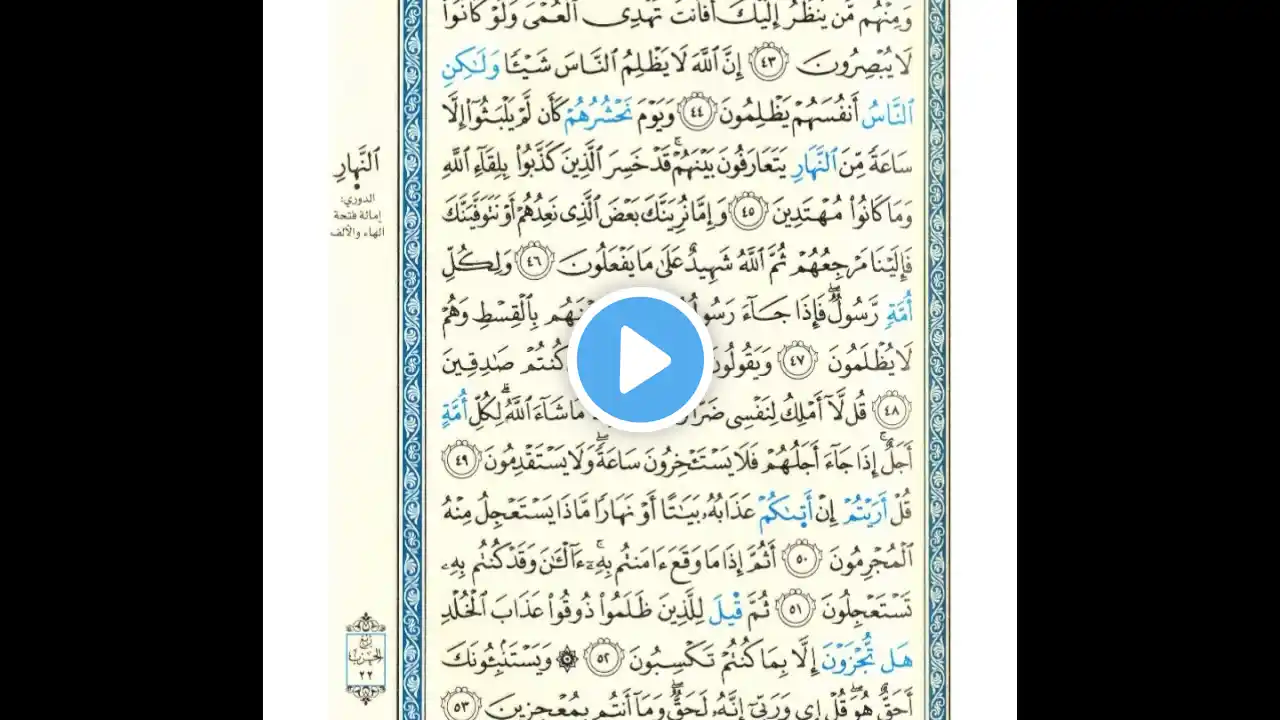 وَمِنْهُم مَّن يَنظُرُ إِلَيْكَ أَفَأَنتَ تَهْدِى ٱلْعُمْىَ وَلَوْ كَانُوا۟
لَا يُبْصِرُونَ ٤٣ إِنَّ ٱللَّهَ لَا يَظْلِمُ ٱلنَّاسَ شَيْـًٔا وَلَـٰكِنِ
ٱلنَّاسُ أَنفُسَهُمْ يَظْلِمُونَ ٤٤ وَيَوْمَ نَحْشُرُهُمْ كَأَن لَّمْ يَلْبَثُوٓا۟ إِلَّا
سَاعَةً مِّنَ ٱلنَّهَارِ يَتَعَارَفُونَ بَيْنَهُمْۚ قَدْ خَسِرَ ٱلَّذِينَ كَذَّبُوا۟ بِلِقَآءِ ٱللَّهِ
وَمَا كَانُوا۟ مُهْتَدِينَ ٤٥ وَإِمَّا نُرِيَنَّكَ بَعْضَ ٱلَّذِى نَعِدُهُمْ أَوْ نَتَوَفَّيَنَّكَ
فَإِلَيْنَا مَرْجِعُهُمْ ثُمَّ ٱللَّهُ شَهِيدٌ عَلَىٰ مَا يَفْعَلُونَ ٤٦ وَلِكُلِّ
أُمَّةٍ رَّسُولٌۖ فَإِذَا جَآءَ بِٱلْقِسْطِ وَهُمْ
لَا يُظْلَمُونَ ٤٧ وَيَقُولُونَ كُنتُمْ صَـٰدِقِينَ
٤٨ قُل لَّآ أَمْلِكُ لِنَفْسِى مَا شَآءَ ٱللَّهُۗ لِكُلِّ أُمَّةٍ
أَجَلٌۚ إِذَا جَآءَ أَجَلُهُمْ فَلَا يَسْتَـْٔخِرُونَ سَاعَةًۖ وَلَا يَسْتَقْدِمُونَ ٤٩
قُلْ أَرَيْتُمْ إِنْ أَتَىٰكُمْ عَذَابُهُۥ بَيَـٰتًا أَوْ نَهَارًا مَّاذَا يَسْتَعْجِلُ مِنْهُ
ٱلْمُجْرِمُونَ ٥٠ أَثُمَّ إِذَا مَا وَقَعَ ءَامَنتُم بِهِۦٓۚ ءَآلْـَٔـٰنَ وَقَدْ كُنتُم بِهِۦ
تَسْتَعْجِلُونَ ٥١ ثُمَّ قِيلَ لِلَّذِينَ ظَلَمُوا۟ ذُوقُوا۟ عَذَابَ ٱلْخُلْدِ
هَل تُّجْزَوْنَ إِلَّا بِمَا كُنتُمْ تَكْسِبُونَ ٥٢ ۞ وَيَسْتَنۢبِـُٔونَكَ
أَحَقٌّ هُوَۖ قُلْ إِى وَرَبِّىٓ إِنَّهُۥ لَحَقٌّۖ وَمَآ أَنتُم بِمُعْجِزِينَ ٥٣
ٱلنَّهَارِ
الدوري:
إمالة فتحة
الهاء والألف
ربع
الحزب
٢٢